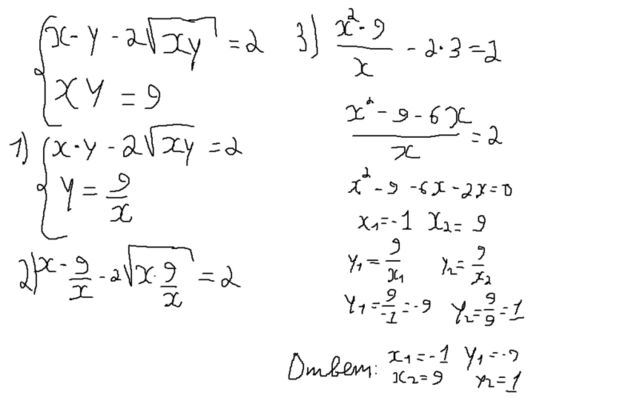 x - y - 2√xy = 2
xy = 9
1) x · y - 2√xy = 2
y = 9/x
2) x - 9/x - 2√x · 9/x = 2
3) x² - 9 / x - 2 · 3 = 2
x² - 9 - 6x / x = 2
x² - 9 - 6x - 2x = 0
x₁ = -1 x₂ = 9
y₁ = 9/x₁ y₂ = 9/x₂
y₁ = 9/-1 = -9 y₂ = 9/9 = 1
Ответ: x₁ = -1 y₁ = -9
x₂ = 9 y₂ = 1